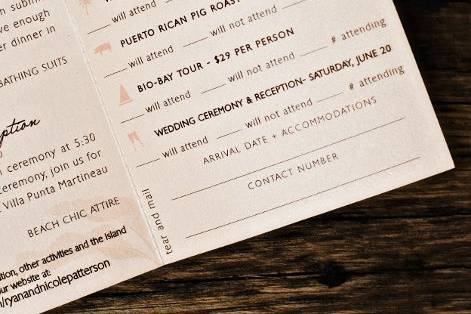 have enough
dinner in
BATHING SUITS
ception
ceremony at 5:30
ceremony, join us for
Villa Punta Martineau
BEACH CHIC ATTIRE
other activities and the island
our website at:
/ryanandnicolepatterson
tear and mail
will attend will not attend
PUERTO RICAN PIG ROAST
will attend will not attend # attending
BIO-BAY TOUR - $29 PER PERSON
will attend will not attend # attending
WEDDING CEREMONY & RECEPTION- SATURDAY, JUNE 20
will attend will not attend # attending
ARRIVAL DATE + ACCOMMODATIONS
CONTACT NUMBER